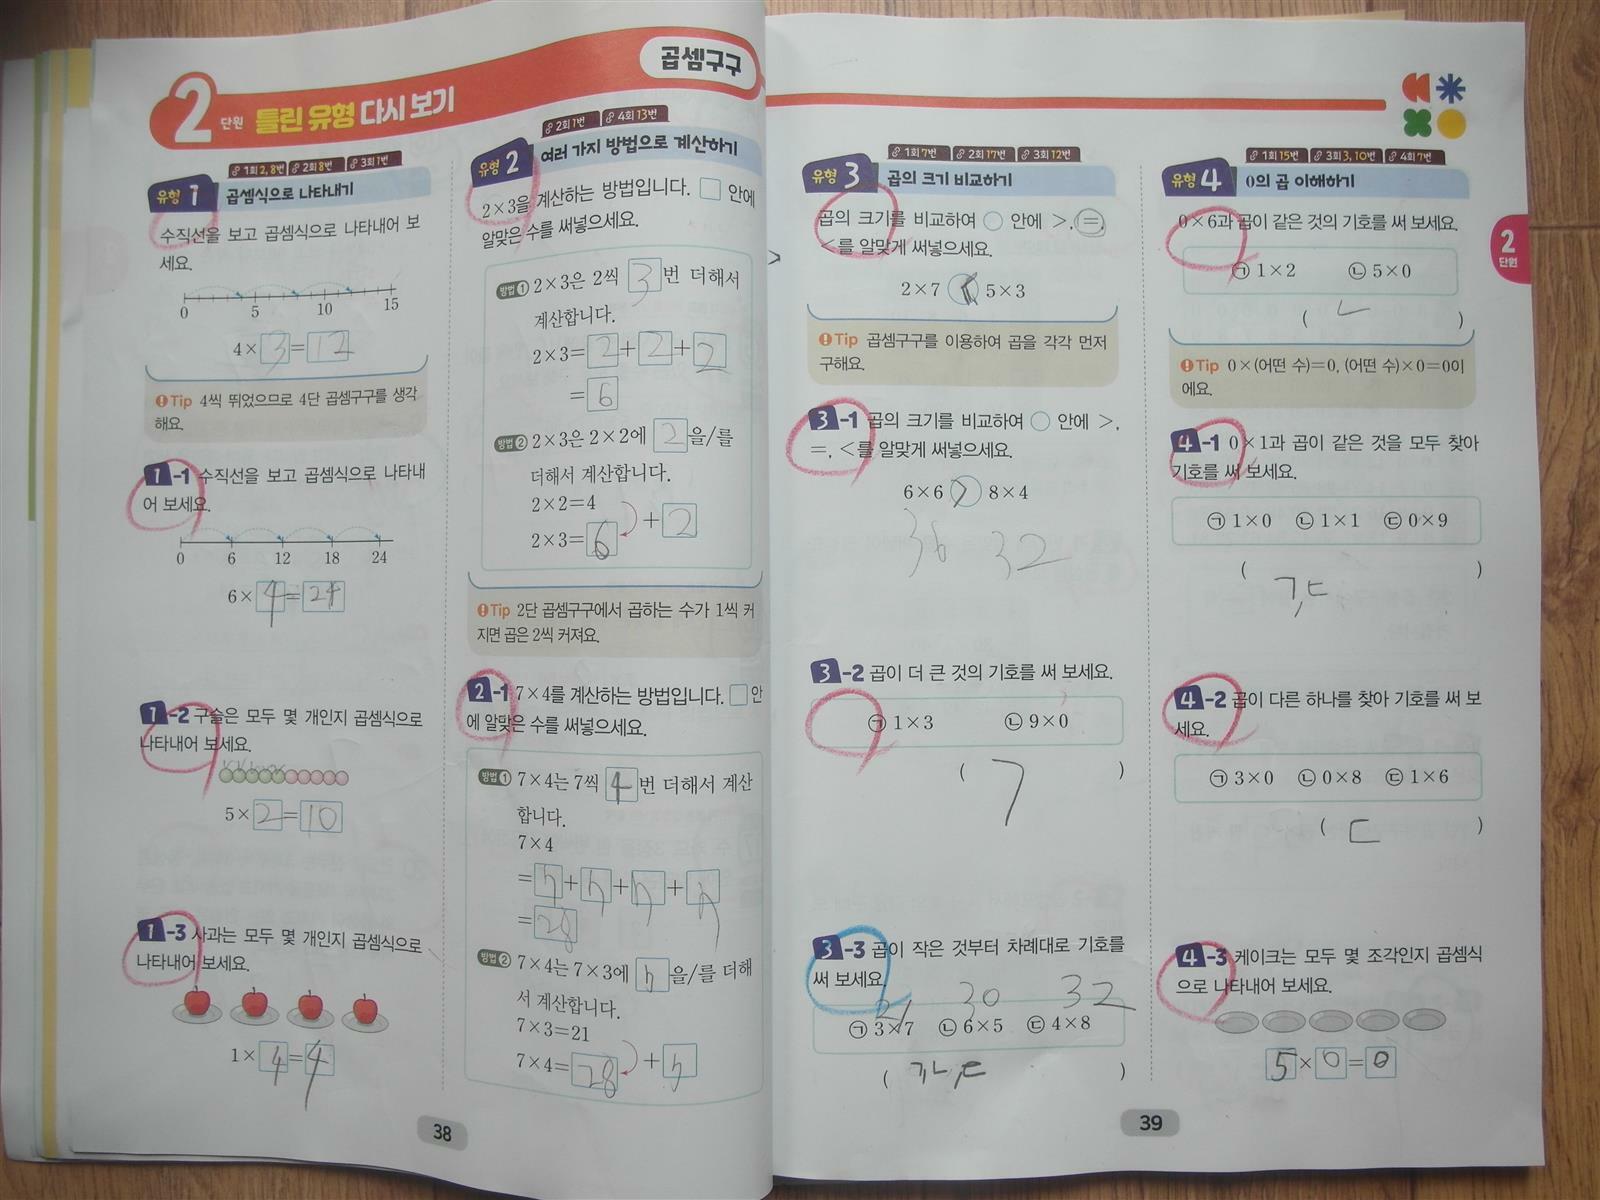 곱셈구구
2 단원 틀린 유형 다시 보기
1회 2, 8번 2회 8번 3회 1번
유형 1 곱셈식으로 나타내기
수직선을 보고 곱셈식으로 나타내어 보
세요.
0 5 10 15
4×3=12
Tip 4씩 뛰었으므로 4단 곱셈구구를 생각
해요.
1-1 수직선을 보고 곱셈식으로 나타내
어 보세요.
0 6 12 18 24
6×4=24
1-2 구슬은 모두 몇 개인지 곱셈식으로
나타내어 보세요.
5×2=10
1-3 사과는 모두 몇 개인지 곱셈식으로
나타내어 보세요.
1×4=4
2회 1번 4회 13번
유형 2 여러 가지 방법으로 계산하기
2×3을 계산하는 방법입니다. □ 안에
알맞은 수를 써넣으세요.
방법 1 2×3은 2씩 3번 더해서
계산합니다.
2×3=2+2+2
=6
방법 2 2×3은 2×2에 2을/를
더해서 계산합니다.
2×2=4
+2
2×3=6
Tip 2단 곱셈구구에서 곱하는 수가 1씩 커
지면 곱은 2씩 커져요.
2-1 7×4를 계산하는 방법입니다. □ 안
에 알맞은 수를 써넣으세요.
방법 1 7×4는 7씩 4번 더해서 계산
합니다.
7×4
=7+7+7+7
=28
방법 2 7×4는 7×3에 7을/를 더해
서 계산합니다.
7×3=21
+7
7×4=28
38
1회 7번 2회 17번 3회 12번
유형 3 곱의 크기 비교하기
곱의 크기를 비교하여 ○ 안에 >, =,
<를 알맞게 써넣으세요.
>
2×7 < 5×3
Tip 곱셈구구를 이용하여 곱을 각각 먼저
구해요.
3-1 곱의 크기를 비교하여 ○ 안에 >,
=, <를 알맞게 써넣으세요.
6×6 > 8×4
36 32
3-2 곱이 더 큰 것의 기호를 써 보세요.
㉠ 1×3 ㉡ 9×0
( ㄱ )
3-3 곱이 작은 것부터 차례대로 기호를
써 보세요.
21 30 32
㉠ 3×7 ㉡ 6×5 ㉢ 4×8
( ㄱ,ㄴ,ㄷ )
1회 15번 3회 3, 10번 4회 7번
유형 4 0의 곱 이해하기
0×6과 곱이 같은 것의 기호를 써 보세요.
㉠ 1×2 ㉡ 5×0
( ㄴ )
Tip 0×(어떤 수)=0, (어떤 수)×0=0이
에요.
4-1 0×1과 곱이 같은 것을 모두 찾아
기호를 써 보세요.
㉠ 1×0 ㉡ 1×1 ㉢ 0×9
( ㄱ,ㄷ )
4-2 곱이 다른 하나를 찾아 기호를 써 보
세요.
㉠ 3×0 ㉡ 0×8 ㉢ 1×6
( ㄷ )
4-3 케이크는 모두 몇 조각인지 곱셈식
으로 나타내어 보세요.
5×0=0
2 단원
39